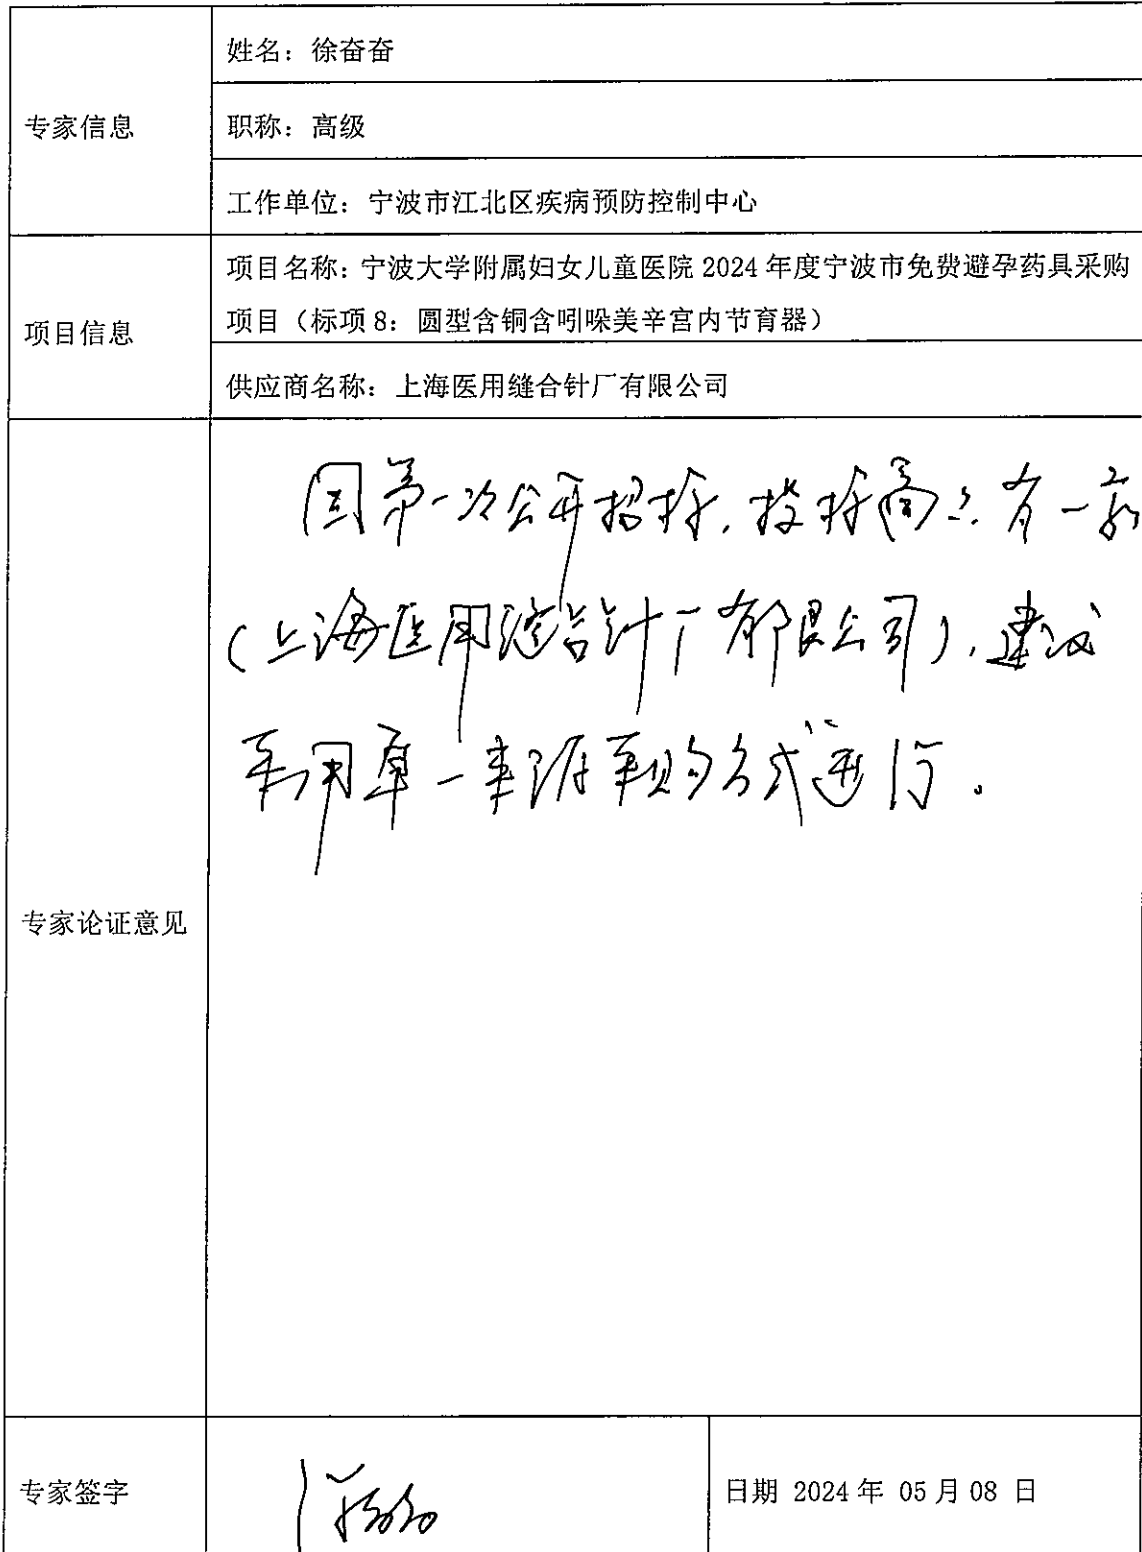 专家信息
姓名：徐奋奋
职称：高级
工作单位：宁波市江北区疾病预防控制中心
项目信息
项目名称：宁波大学附属妇女儿童医院 2024 年度宁波市免费避孕药具采购
项目（标项 8：圆型含铜含吲哚美辛宫内节育器）
供应商名称：上海医用缝合针厂有限公司
专家论证意见
因第一次公开招标，投标商只有一家
（上海医用缝合针厂有限公司），建议
采用单一来源采购方式进行。
专家签字
徐奋奋
日期 2024 年 05 月 08 日